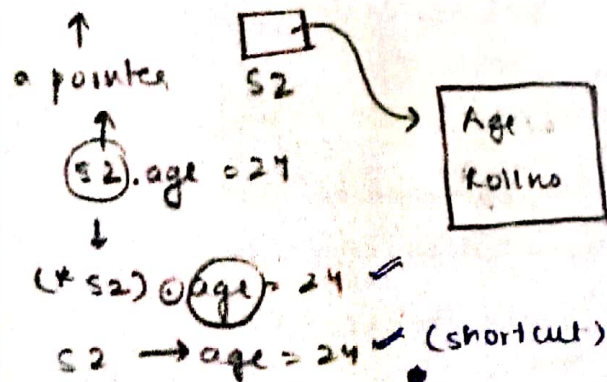 ↑
a pointer
s2
Age
Rollno
↑
s2.age = 24
↓
(*s2).age = 24
s2 → age = 24 (shortcut)